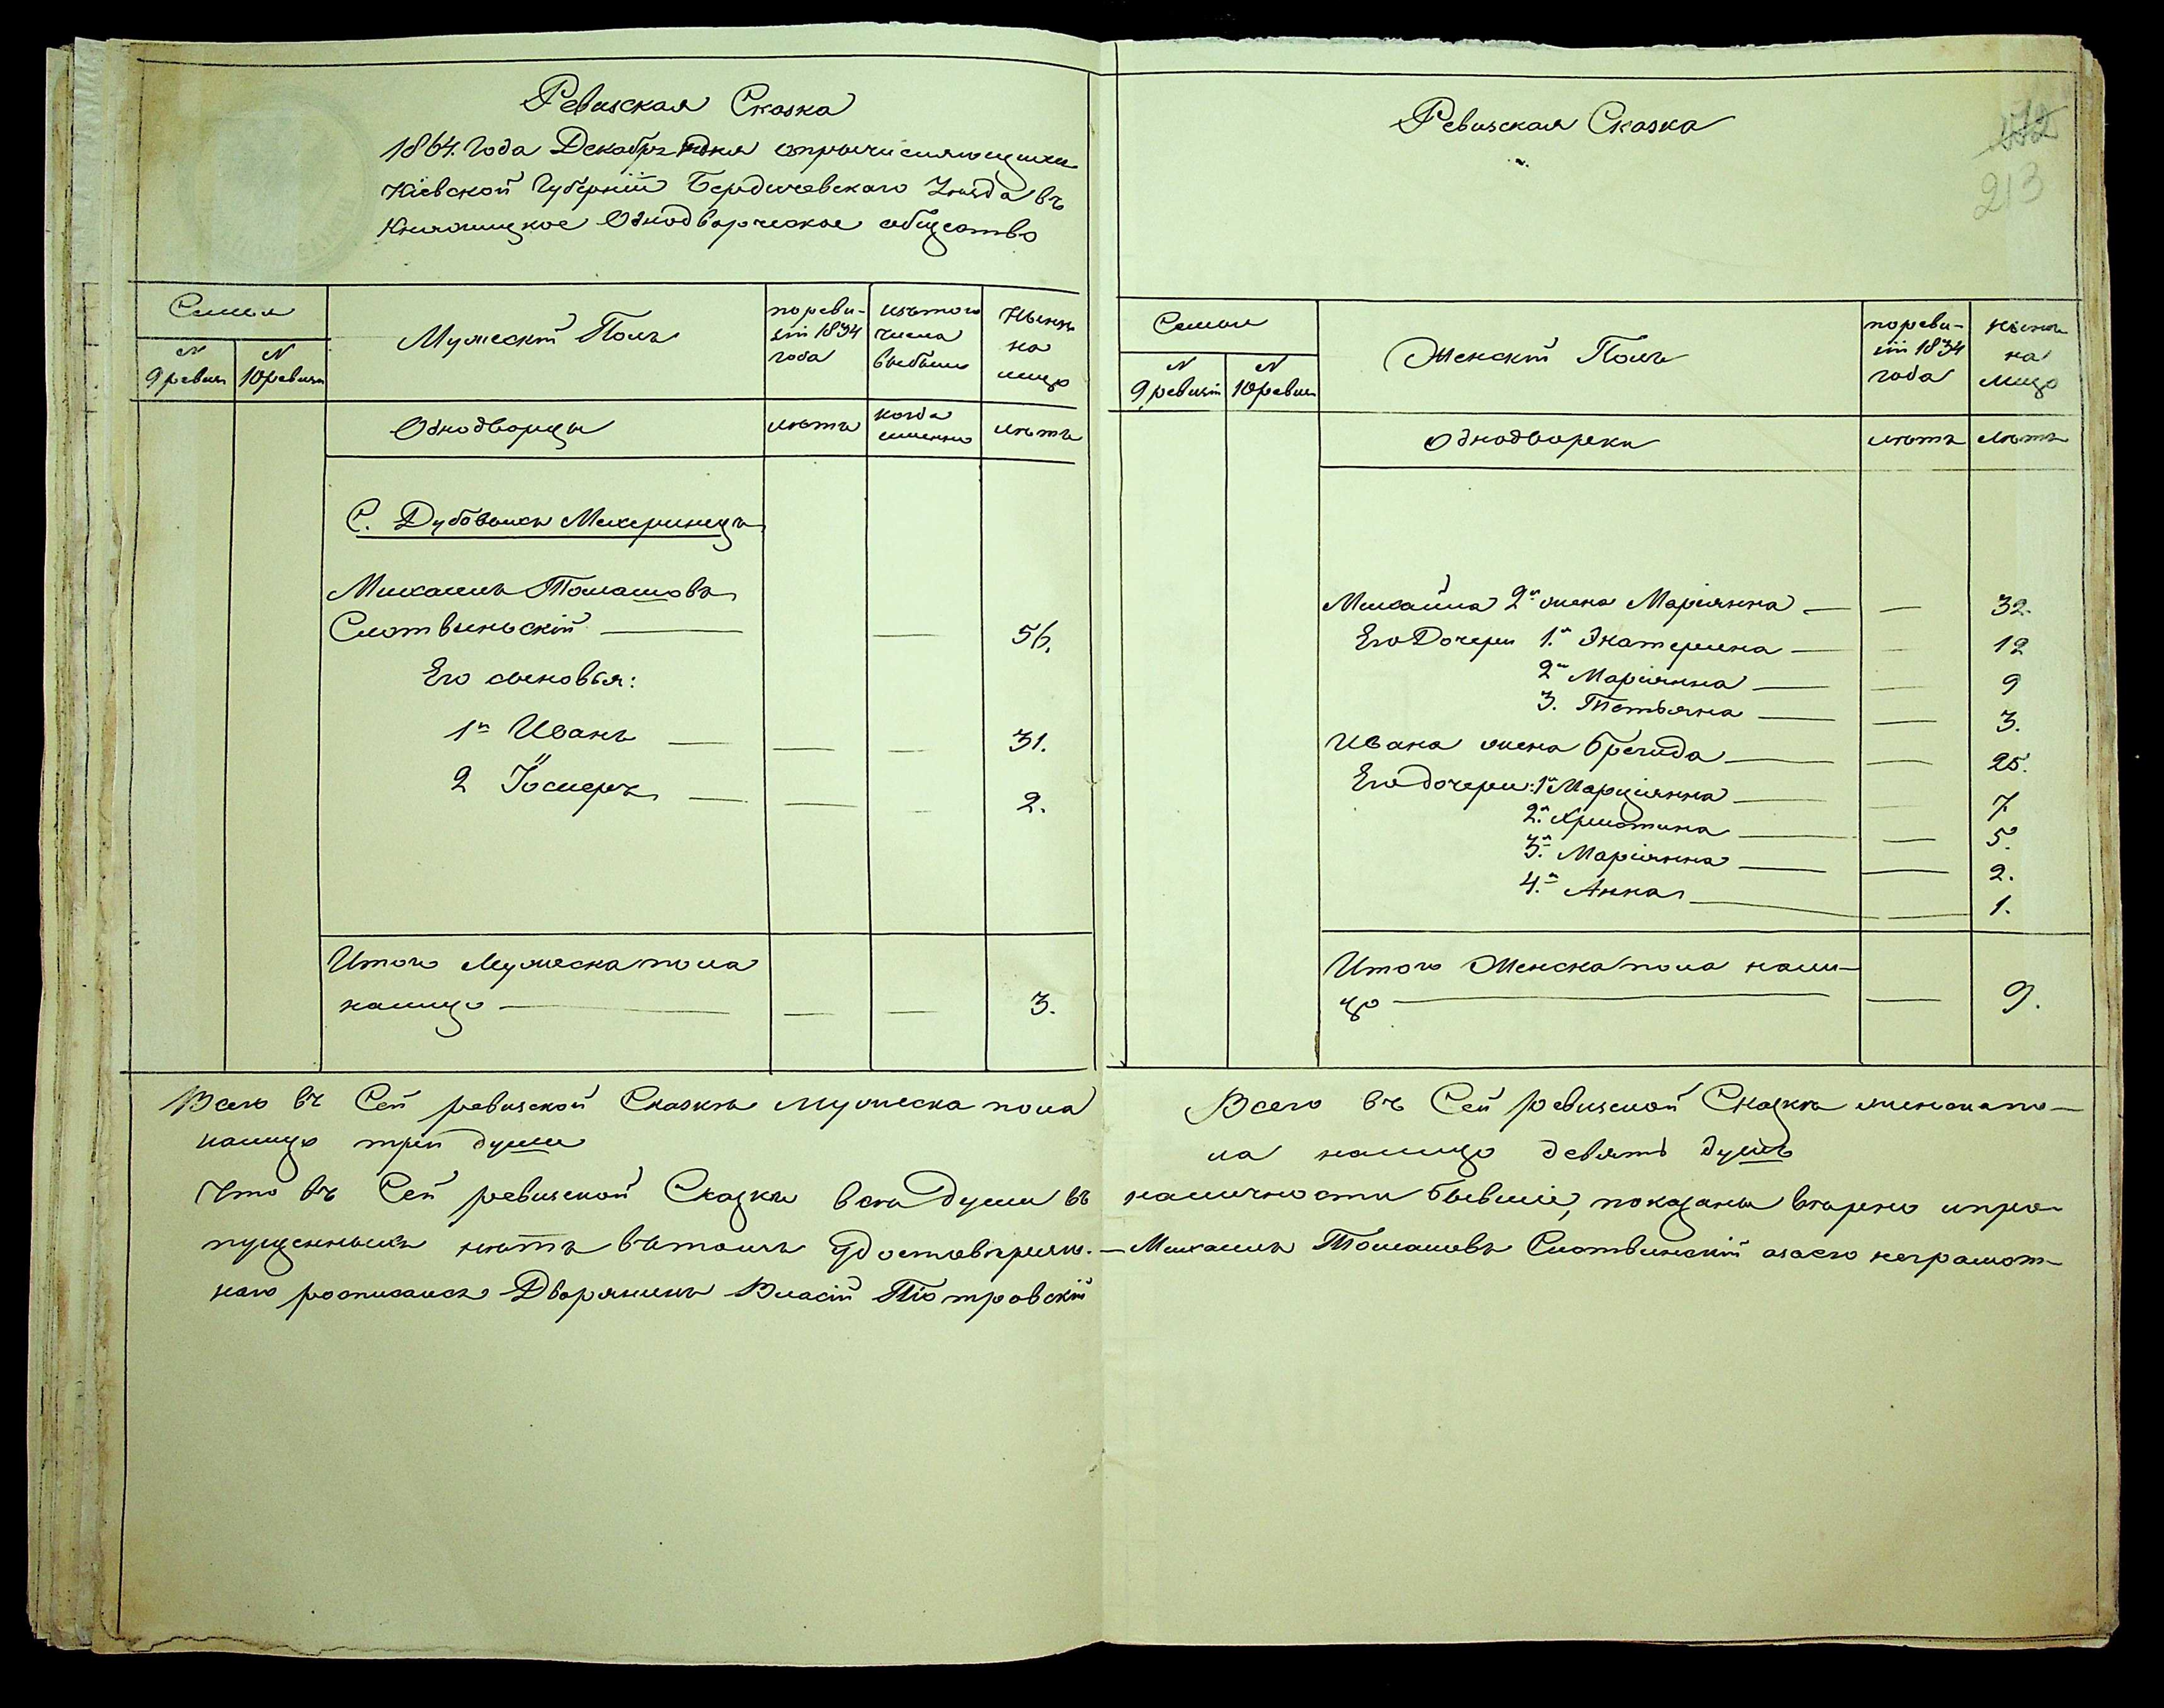 Ревизская Сказка
1864. года Декабря дня опричисляющихся
Кіевской Губерніи Бердичевскаго Уѣзда въ
Одводворческое общество
Семья
N
9 ревизіи
N
10 ревизіи
Мужескій Полъ
по реви-
зіи 1834
года
изъ того
числа
выбыло
Нынѣ
на
лицо
Однодворцы
лѣтъ
когда
именно
лѣтъ
С. Дубовыхъ Махаринецъ
Михаилъ Томашовъ
Слотвинскій — — 56.
Его сыновья:
1й Иванъ — — — 31.
2 Іосифъ — — — 2.
Итого Мужеска пола
налицо — — — 3.
Всего въ Сей ревизской Сказкѣ мужеска пола
налицо три души
Ревизская Сказка
172
213
Семьи
N
9 ревизіи
N
10 ревизіи
Женскій Полъ
по реви-
зіи 1834
года
нынѣ
на
лицо
Однодворки
лѣтъ
лѣтъ
Михаила 2я жена Маріянна — — 32.
Его Дочери 1я Екатерина — — 12
2я Маріянна — — 9
3. Татьяна — — 3.
Ивана жена Бригида — — 25.
Его дочери: 1я Марціянна — — 7.
2я Христина — — 5.
3я Маріянна — — 2.
4я Анна — — 1.
Итого Женска пола нали-
цо — — 9.
Всего въ Сей ревизской Сказкѣ женска по-
ла налицо девять душъ
Что въ Сей ревизской Сказки всѣ души въ наличности бывшіе, показаны вѣрно и про-
пущенныхъ нѣтъ въ томъ удостовѣряю. — Михаилъ Томашовъ Слотвинскій а за его неграмот-
наго росписался Дворянинъ Власій Піотровскій